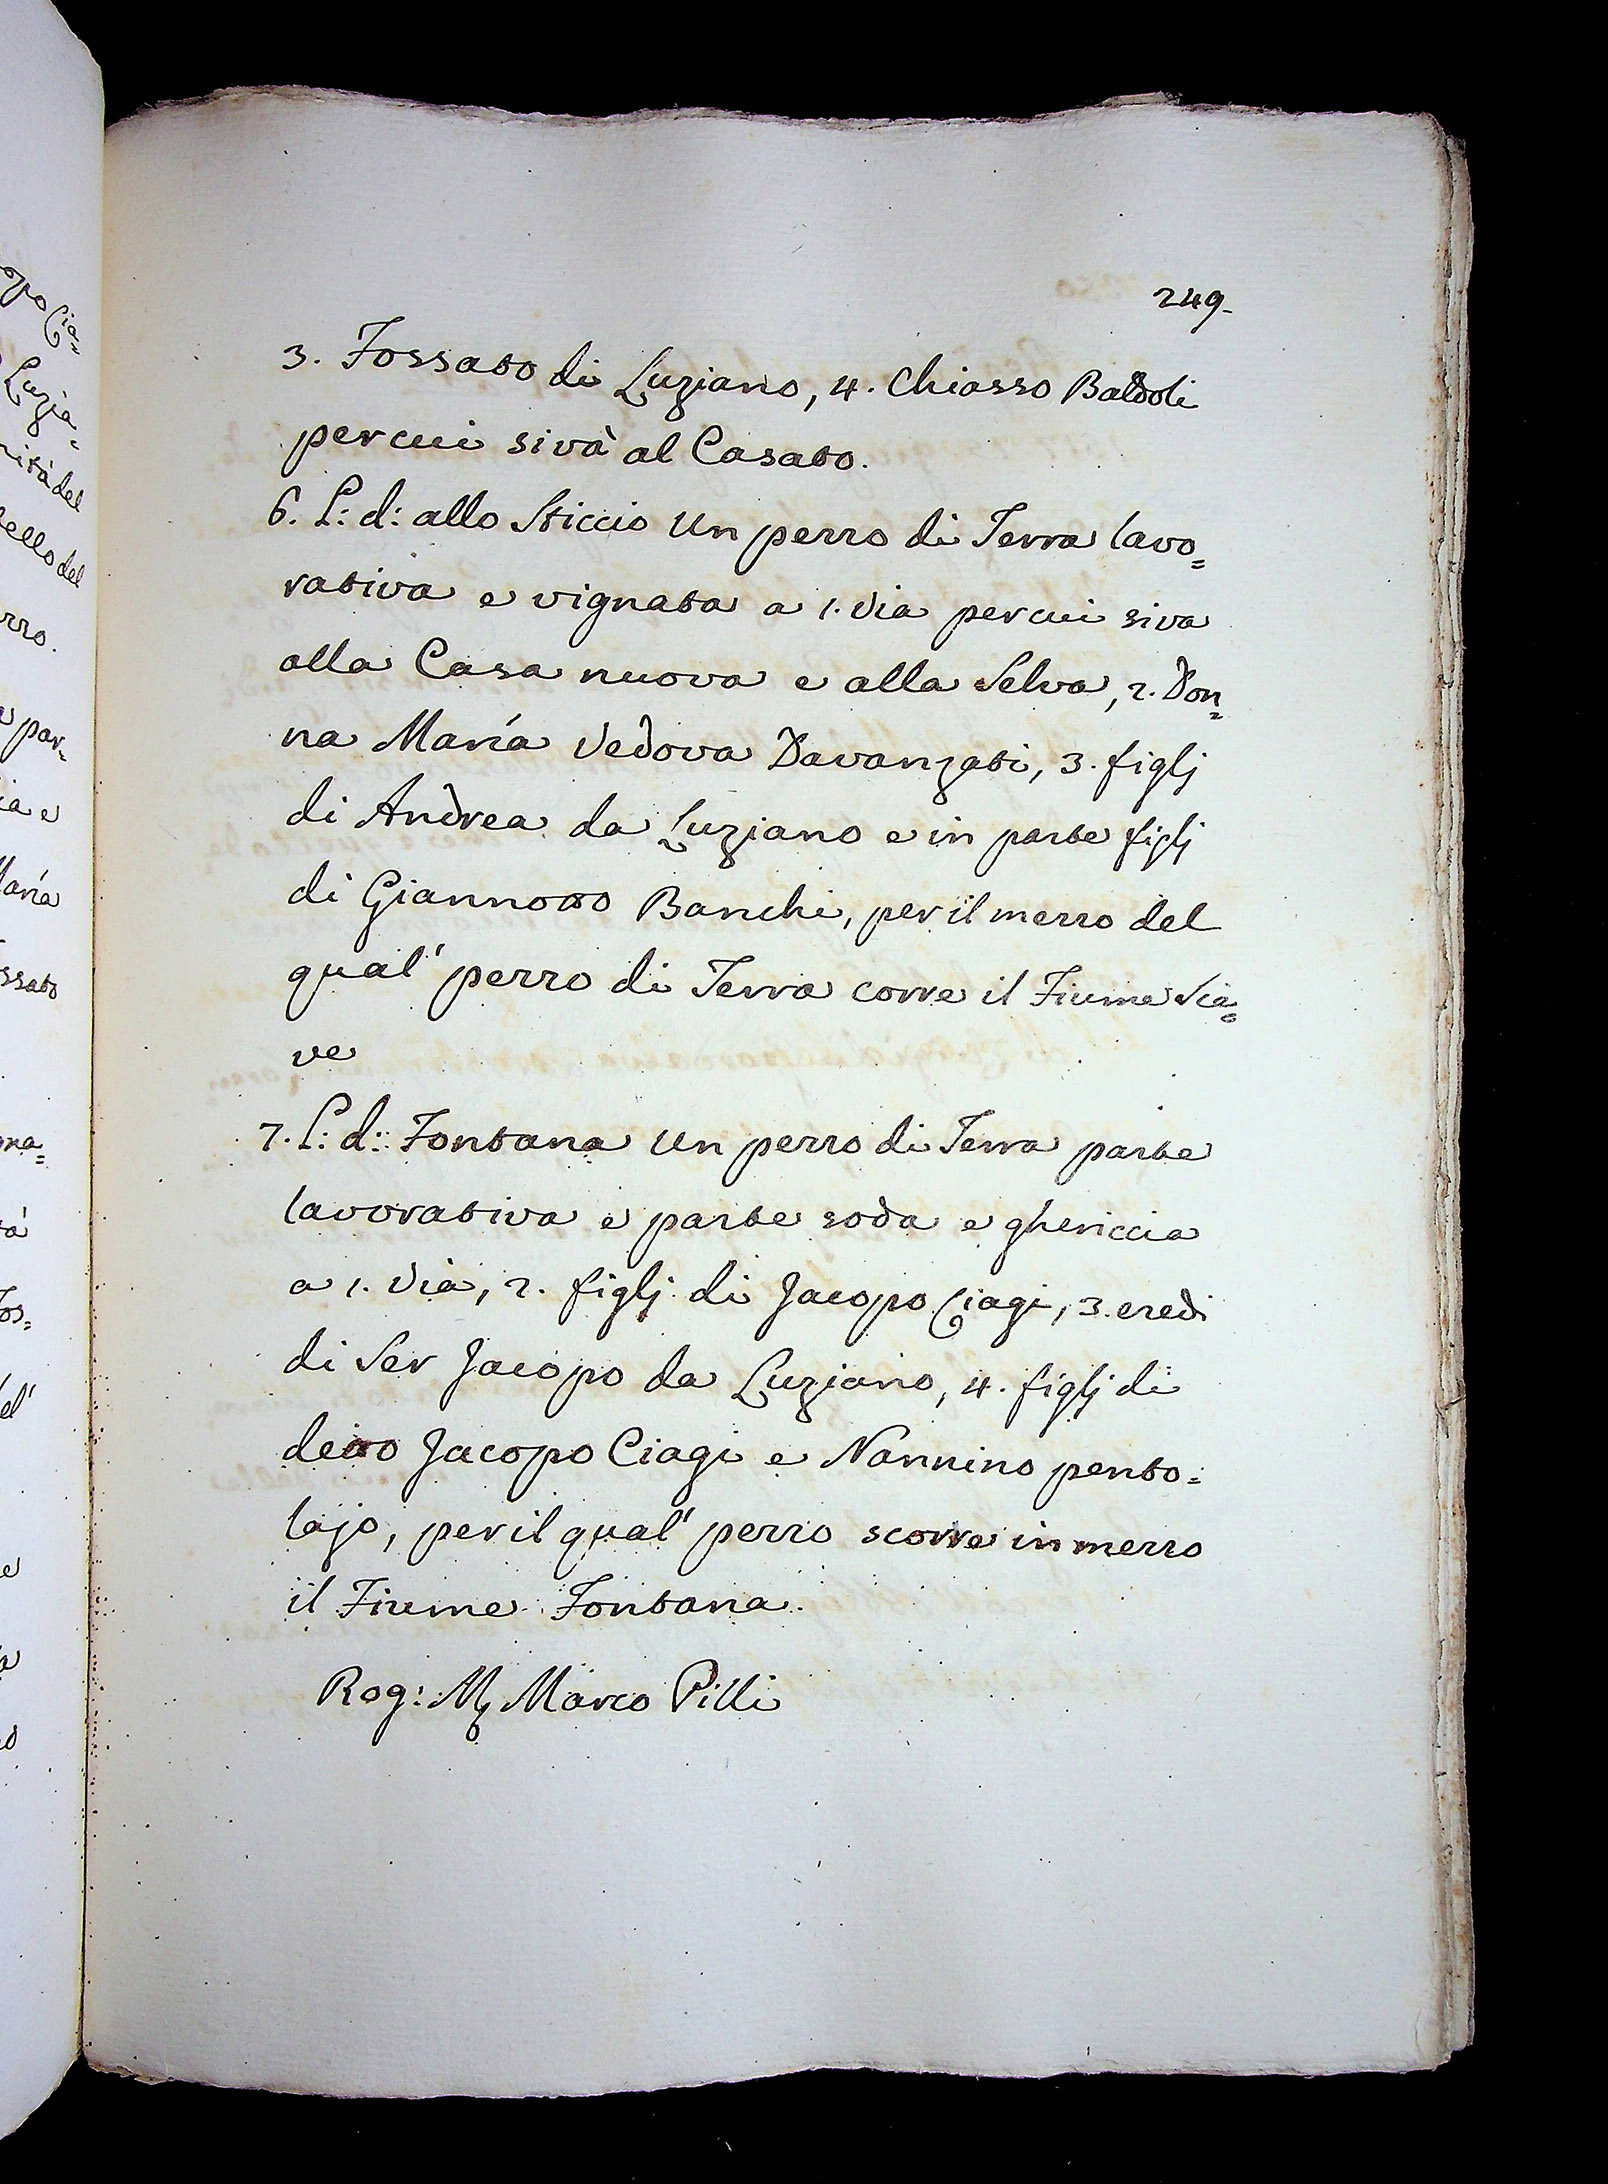 249.
3. Fossato di Luziano, 4. Chiasso Baldoli
per cui si và al Casato.
6. L: d: allo Sticcio un pezzo di Terra lavo=
rativa e vignata a 1. Via per cui si va
alla Casa nuova e alla Selva, 2. Don=
na Maria Vedova Davanzati, 3. figlj
di Andrea da Luziano e in parte figlj
di Giannotto Banchi, per il mezzo del
qual' pezzo di Terra corre il Fiume Scia=
ve
7. L: d: Fontana un pezzo di Terra parte
lavorativa e parte soda e ghericcia
a 1. Via, 2. figlj di Jacopo Ciagi, 3. eredi
di Ser Jacopo da Luziano, 4. figlj di
detto Jacopo Ciagi e Nannino pento=
lajo, per il qual' pezzo scorre in mezzo
il Fiume Fontana.
Rog: Marco Pilli
opo Cia=
Luzia=
nità del
ello del
zzo.
par=
ia e
Maria
ssato
gna=
tà
Fos=
el'